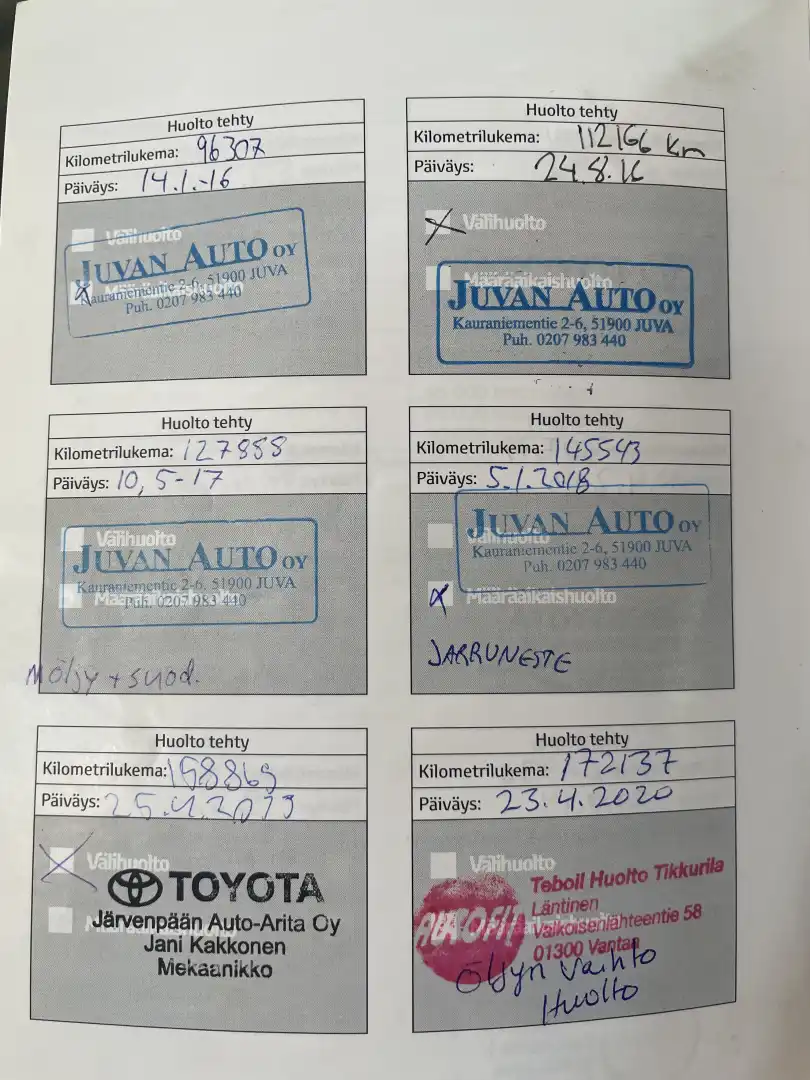 Huolto tehty
Kilometrilukema: 96307
Päiväys: 14.1.-16
Välihuolto
JUVAN AUTO OY
Kauraniementie 2-6, 51900 JUVA
Määräaikaishuolto
Puh. 0207 983 440
Huolto tehty
Kilometrilukema: 112166 km
Päiväys: 24.8.16
Välihuolto
Määräaikaishuolto
JUVAN AUTO OY
Kauraniementie 2-6, 51900 JUVA
Puh. 0207 983 440
Huolto tehty
Kilometrilukema: 127858
Päiväys: 10,5-17
Välihuolto
JUVAN AUTO OY
Kauraniementie 2-6, 51900 JUVA
Määräaikaishuolto
Puh. 0207 983 440
Möljy + suod.
Huolto tehty
Kilometrilukema: 145543
Päiväys: 5.1.2018
JUVAN AUTO OY
Välihuolto
Kauraniementie 2-6, 51900 JUVA
Puh. 0207 983 440
Määräaikaishuolto
JARRUNESTE
Huolto tehty
Kilometrilukema: 158869
Päiväys: 25.4.2019
Välihuolto
TOYOTA
Määräaikaishuolto
Järvenpään Auto-Arita Oy
Jani Kakkonen
Mekaanikko
Huolto tehty
Kilometrilukema: 172137
Päiväys: 23.4.2020
Välihuolto
Teboil Huolto Tikkurila
Läntinen
Valkoisenlähteentie 58
01300 Vantaa
Määräaikaishuolto
Öljyn vaihto
Huolto